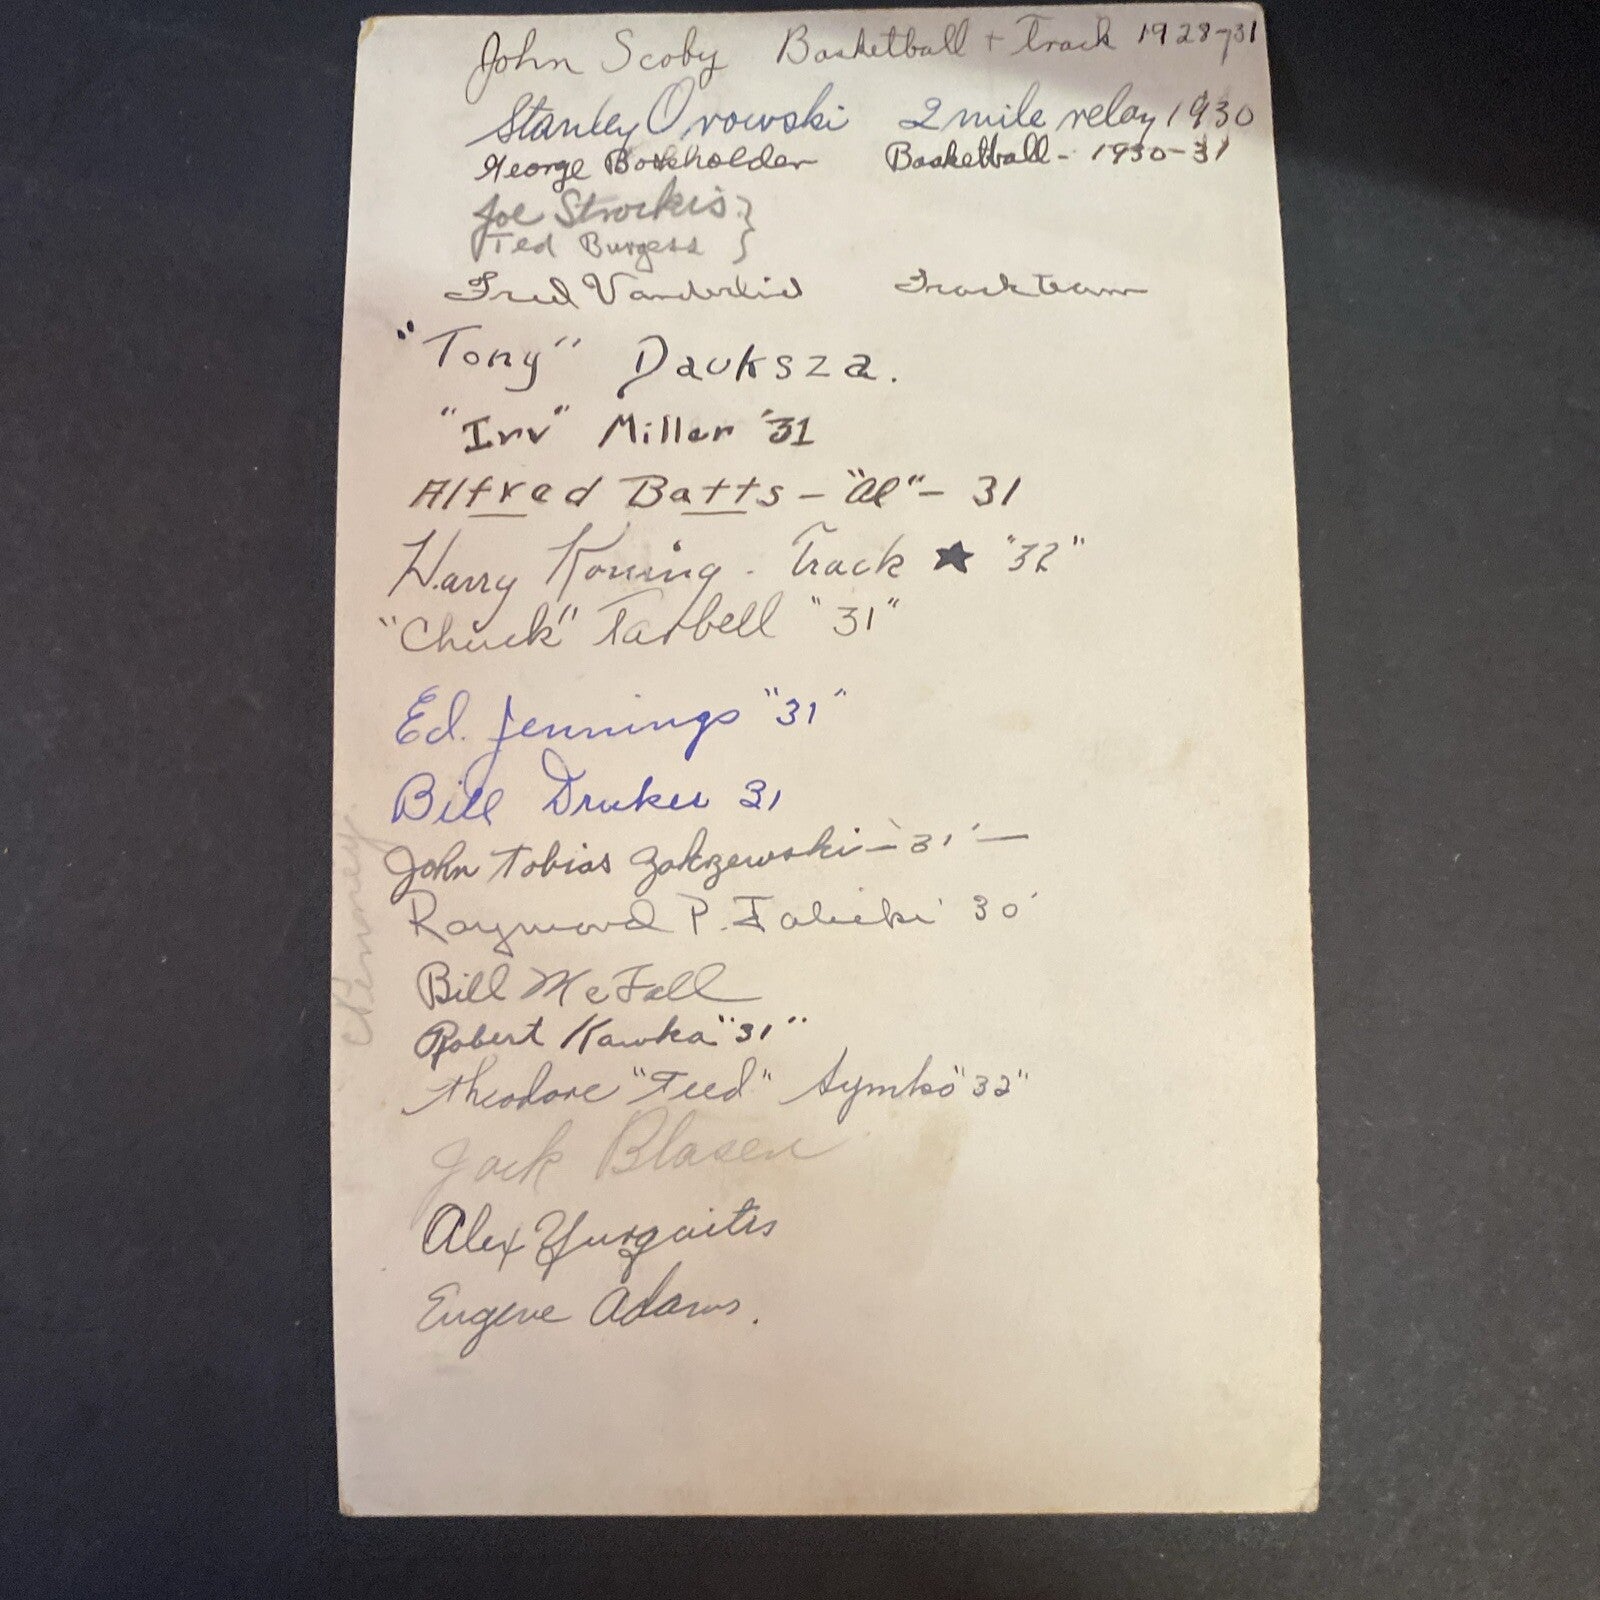 John Scoby Basketball + Track 1928-31
Stanley Orowski 2 mile relay 1930
George Boxeholder Basketball - 1930-31
Joe Strockis }
Ted Burgess }
Fred Vanderlid Track team
"Tony" Dauksza.
"Irv" Miller '31
Alfred Batts - "Al" - 31
Harry Koning. Track ★ "32"
"Chuck" Tarbell "31"
Ed. Jennings "31"
Bill Druker 31
John Tobias Zakzewski - '31' -
Raymond P. Jalicki '30'
Bill McFall
Robert Kawka "31"
Theodore "Teed" Symko "32"
Jack Blasen
Alex Yurgaitis
Eugene Adams.